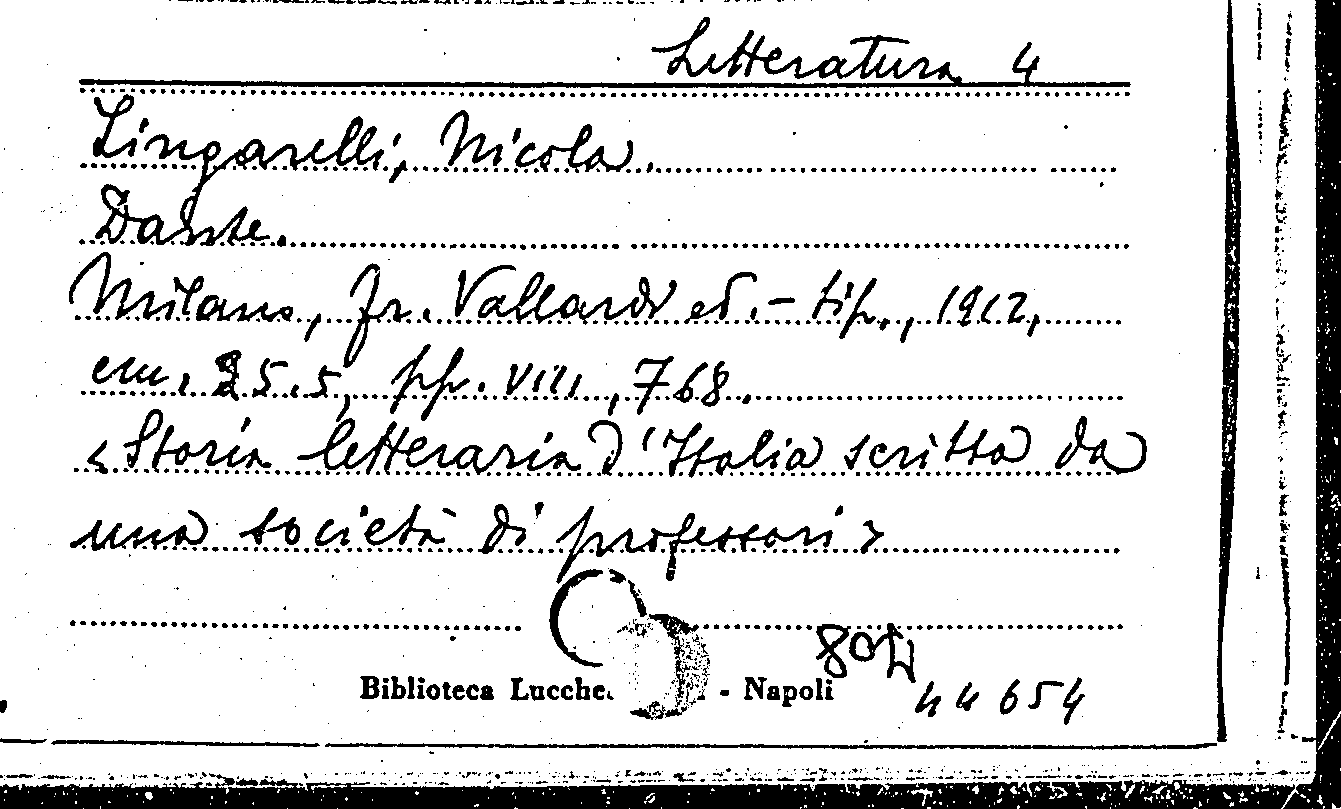 Letteratura 4
Zingarelli, Nicola.
Dante.
Milano, Fr. Vallardi ed.-tip., 1912,
cm. 25.5, pp. VIII, 768.
<Storia letteraria d'Italia scritta da
una società di professori>
Biblioteca Lucche - Napoli
44654